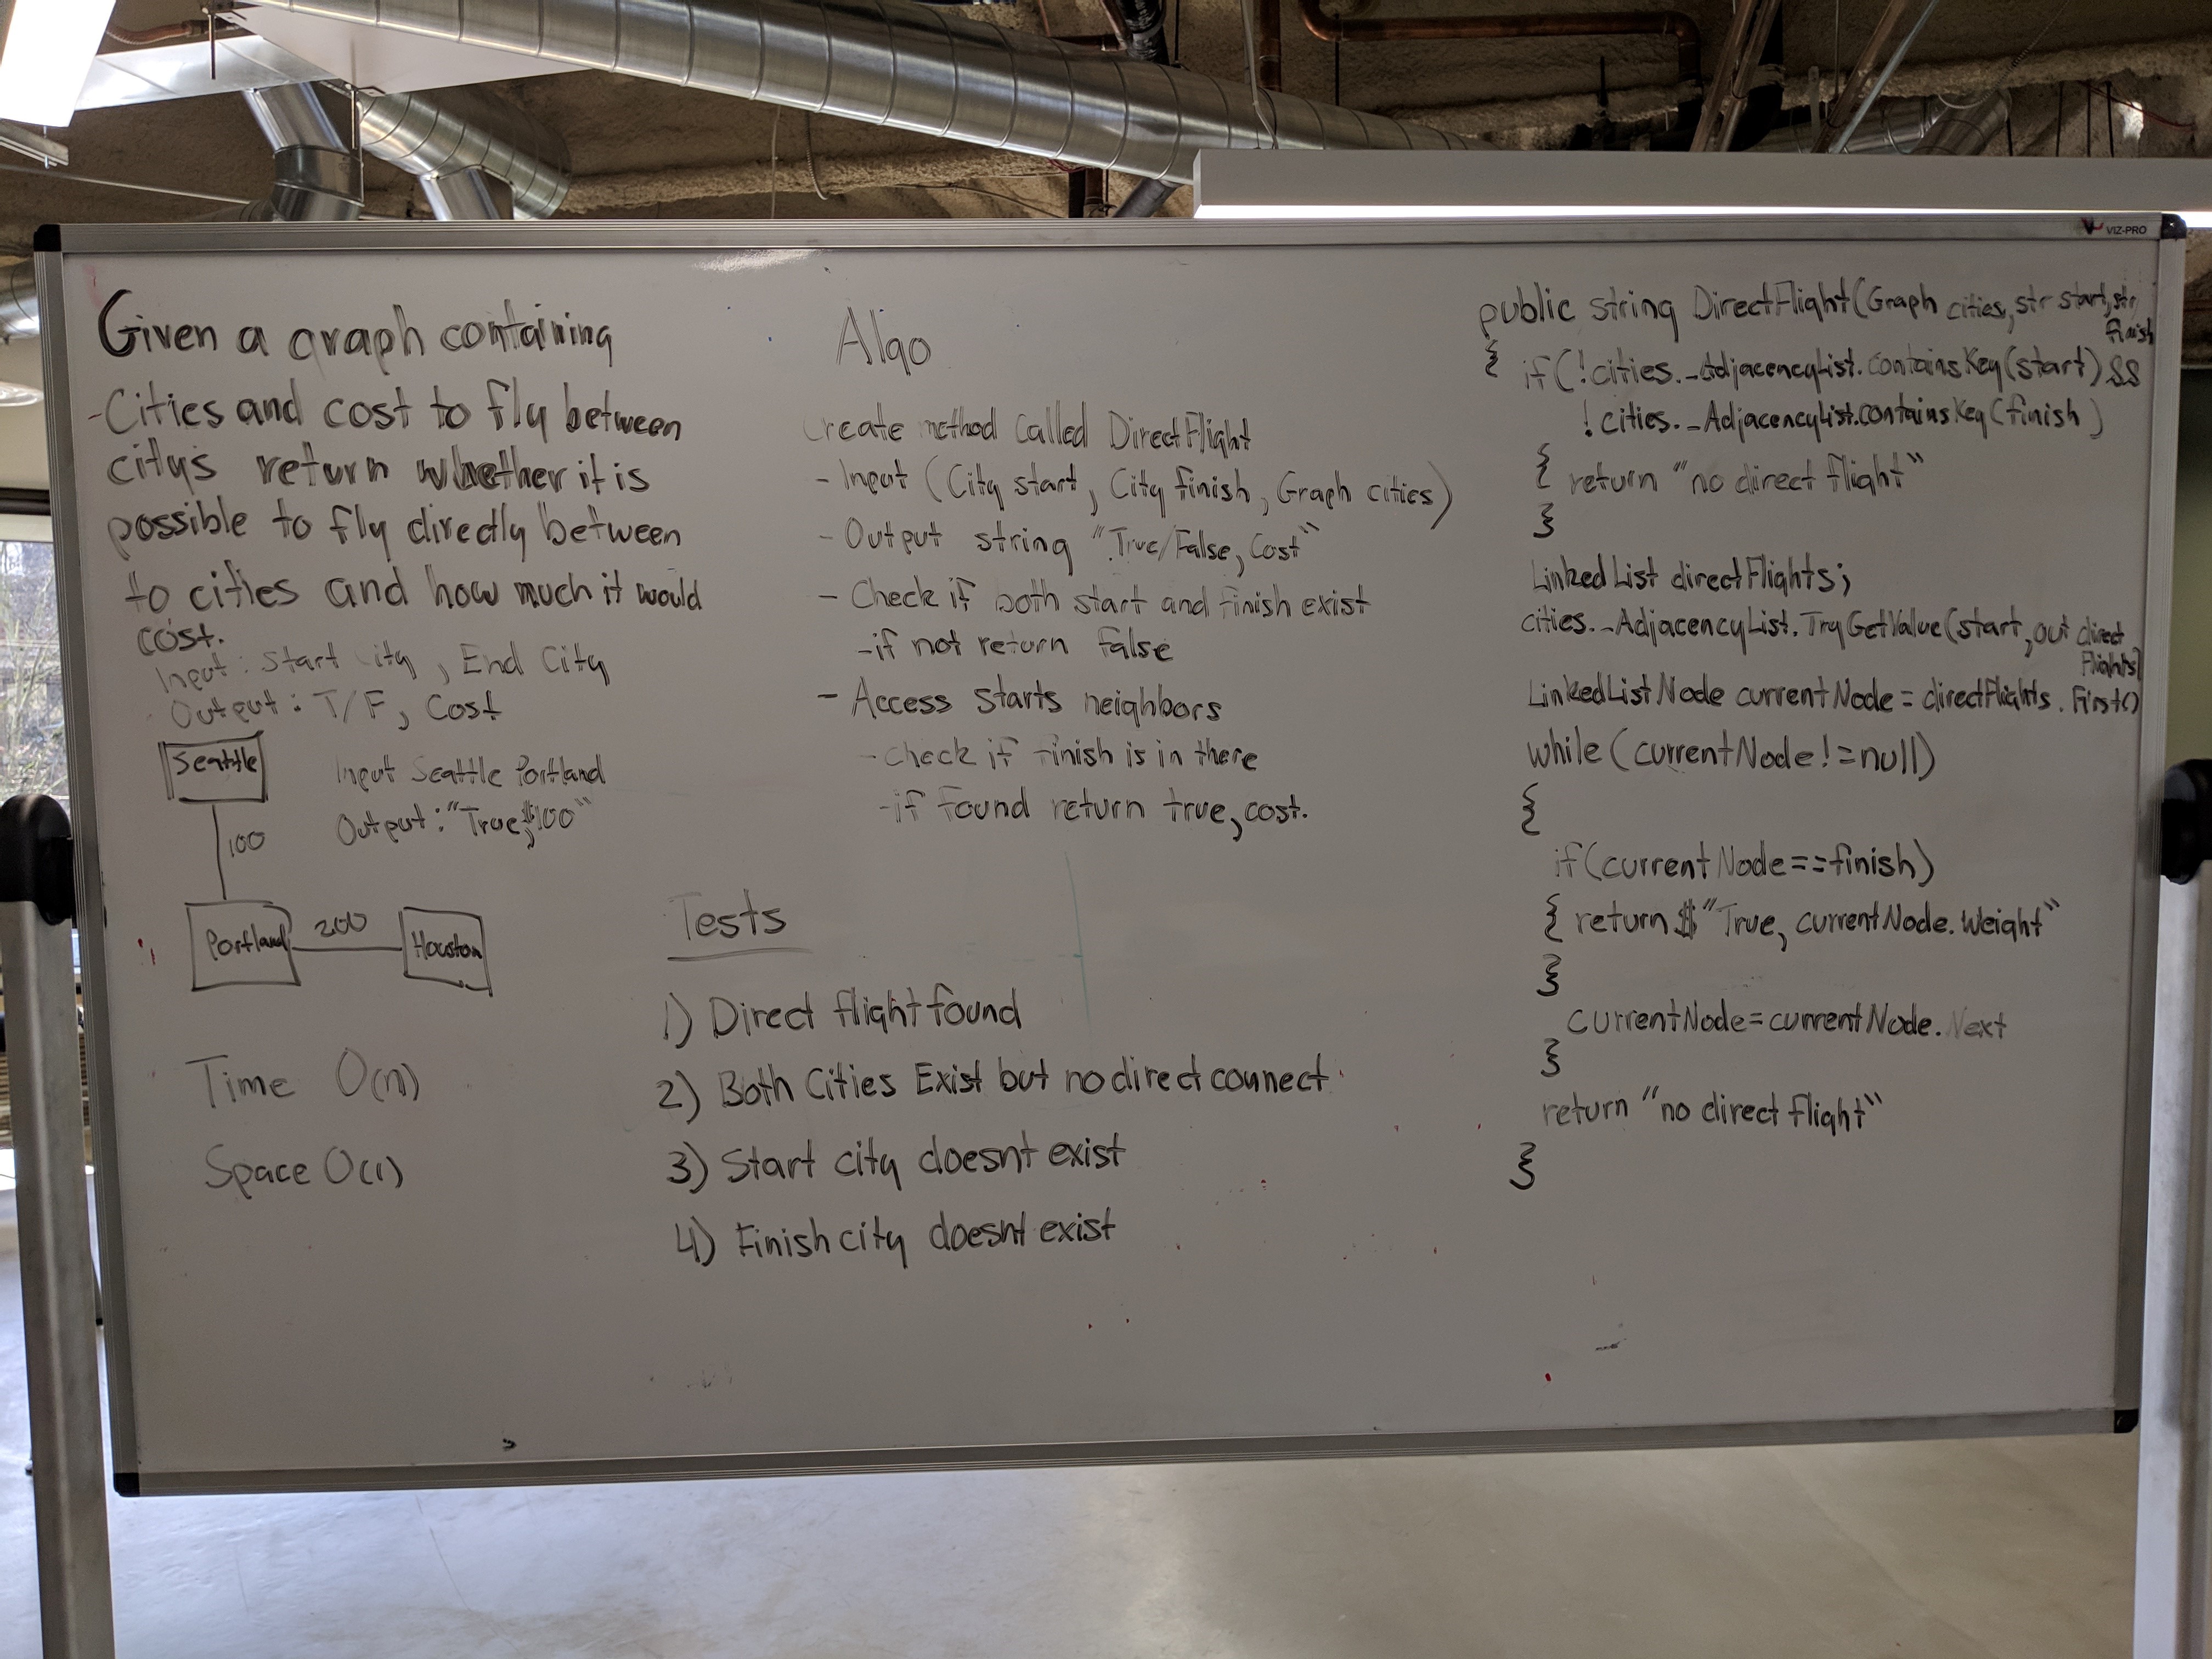 VIZ-PRO
Given a graph containing
-Cities and cost to fly between
city's return whether it is
possible to fly directly between
to cities and how much it would
cost.
Input: Start City, End City
Output: T/F, Cost
Seattle
100
Portland
200
Houston
Input Seattle Portland
Output: "True, $100"
Time O(n)
Space O(1)
Algo
Create method Called DirectFlight
- Input (City start, City finish, Graph cities)
- Output string "True/False, Cost"
- Check if both start and finish exist
-if not return false
- Access starts neighbors
-Check if finish is in there
-if found return true, cost.
Tests
1) Direct flight found
2) Both Cities Exist but no direct connect
3) Start city doesnt exist
4) Finish city doesnt exist
public string DirectFlight(Graph cities, str start, str
finish
{ if(!cities._AdjacencyList.containsKey(start) &&
!cities._AdjacencyList.containsKey(finish)
{ return "no direct flight"
}
LinkedList directFlights;
cities._AdjacencyList.TryGetValue(start, out direct
Flights)
LinkedListNode currentNode = directFlights.First()
while (currentNode != null)
{
if(currentNode==finish)
{ return $"True, currentNode.Weight"
}
currentNode=currentNode.Next
}
return "no direct flight"
}